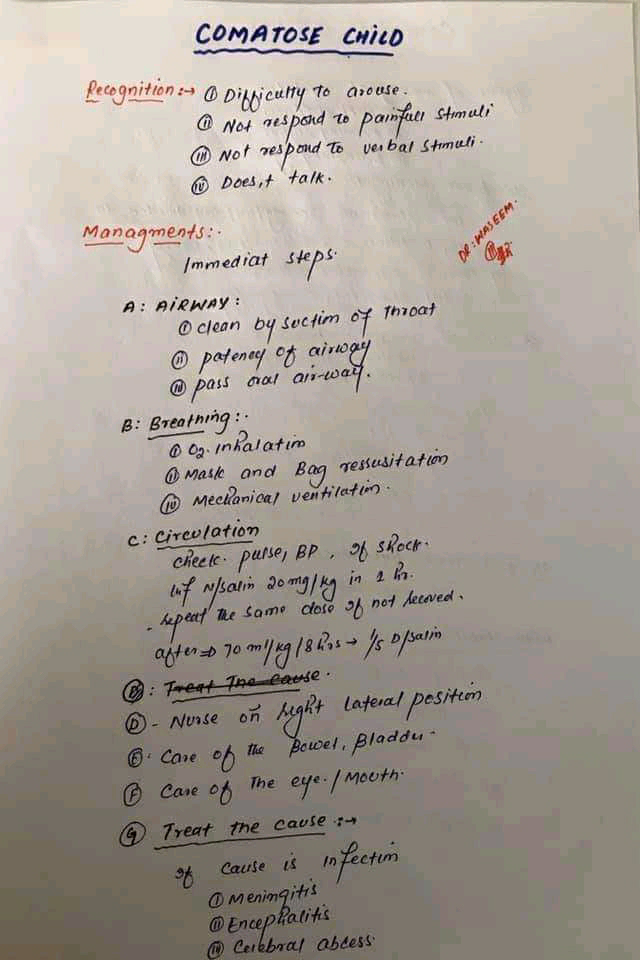 COMATOSE CHILD
Recognition:→ (i) Difficulty to arouse.
(ii) Not respond to painfull stimuli
(iii) Not respond to verbal stimuli.
(iv) Does,t talk.
Managments:.
DR: WASEEM.
Immediat steps.
A: AIRWAY:
(i) clean by suction of throat
(ii) patency of airway
(iii) pass oral air-way.
B: Breathing:.
(i) O2. inhalation
(ii) Mask and Bag ressusitation
(iv) Mechanical ventilation.
C: circulation
check. pulse, BP, if shock.
inf N/salin 20mg/kg in 1 hr.
- repeat the same dose if not recoved.
after⇒ 70 ml/kg/8hrs → 1/5 D/salin
(D): Treat The cause.
(D) - Nurse on right lateral position
(E). Care of the Bowel, Bladder.
(F) Care of The eye. / Mouth.
(G) Treat the cause :→
if cause is infection
(i) Meningitis
(ii) Encephalitis
(iii) Cerebral abcess.